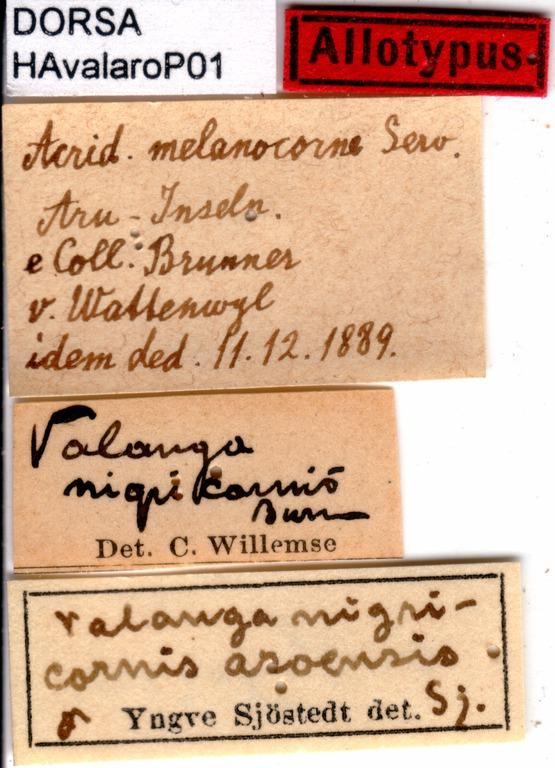 DORSA
HAvalaroP01
Allotypus
Acrid. melanocorne Serv.
Aru-Inseln.
e Coll. Brunner
v. Wattenwyl
idem ded. 11.12.1889.
Valanga
nigricornis
Burm
Det. C. Willemse
Valanga nigri-
cornis aroensis
Yngve Sjöstedt det. Sj.